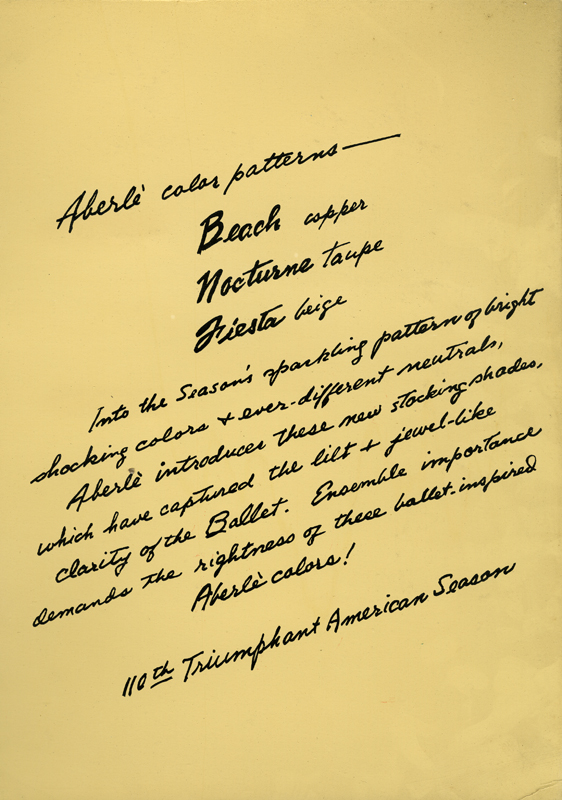 Aberlè color patterns—
Beach copper
Nocturne taupe
Fiesta beige
Into the Season's sparkling pattern of bright
shocking colors + ever-different neutrals,
Aberlè introduces these new stocking shades,
which have captured the lilt + jewel-like
clarity of the Ballet. Ensemble importance
demands the rightness of these ballet-inspired
Aberlè colors!
110th Triumphant American Season